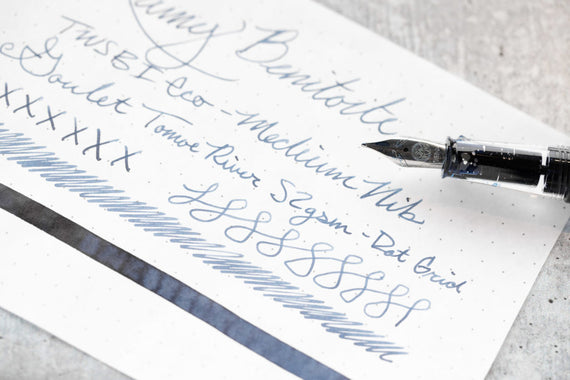 Benitoite
TWSBI Eco - Medium Nib
Goulet Tomoe River 52gsm - Dot Grid
XXXXXX